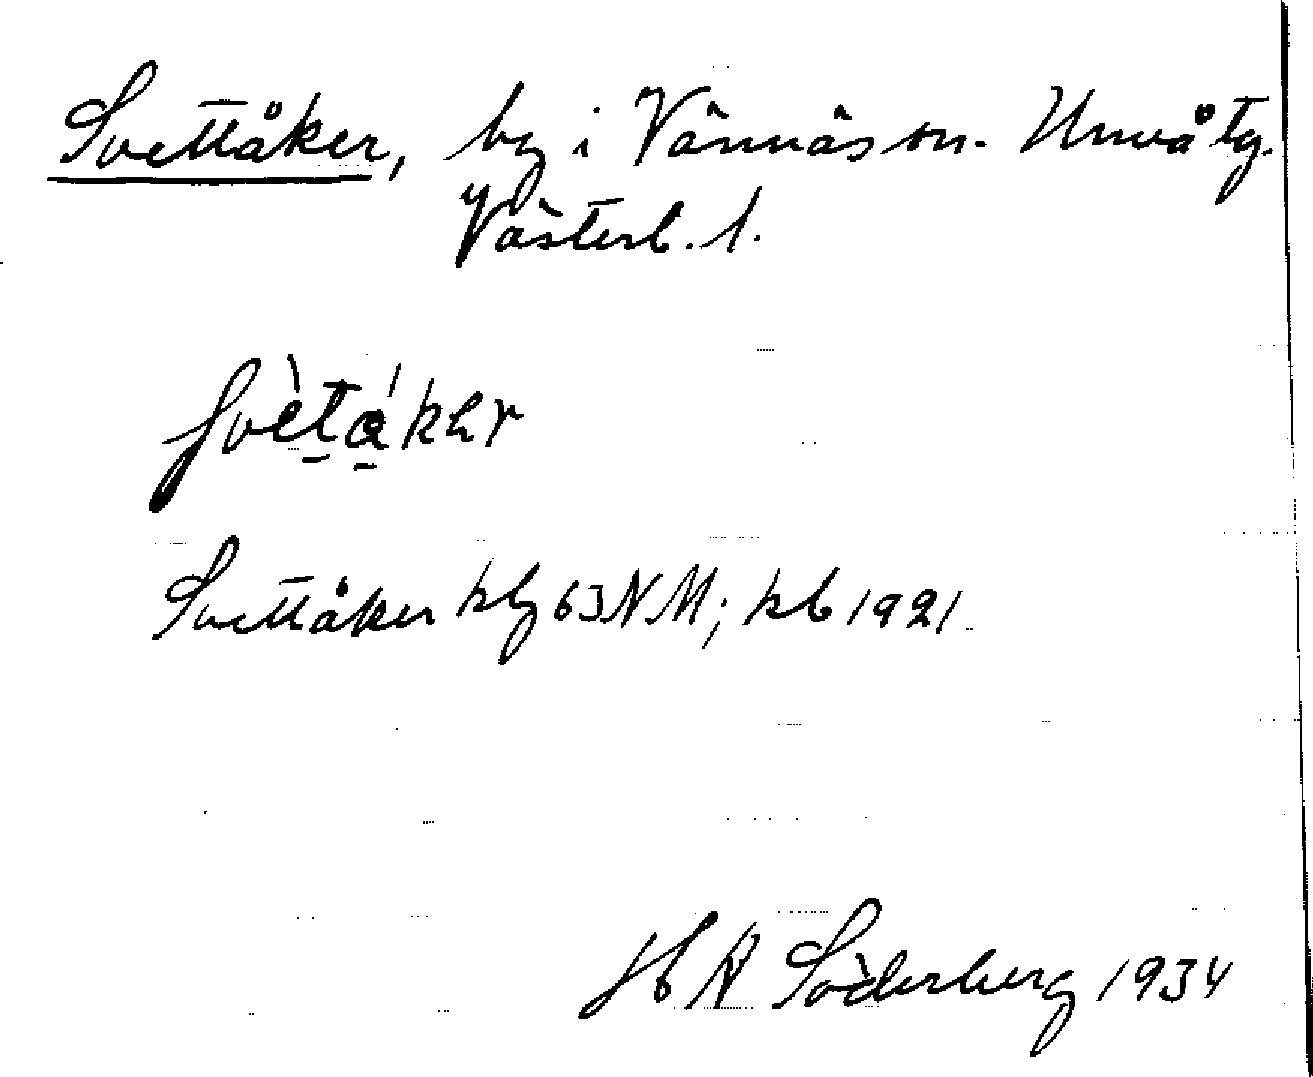 Svettåker, by i Vännäs sn. Umeå tg.
Västerb. l.
svèt̠a̠´kər
Svettåker kbl 63NM; kb 1921.
H Söderberg 1934